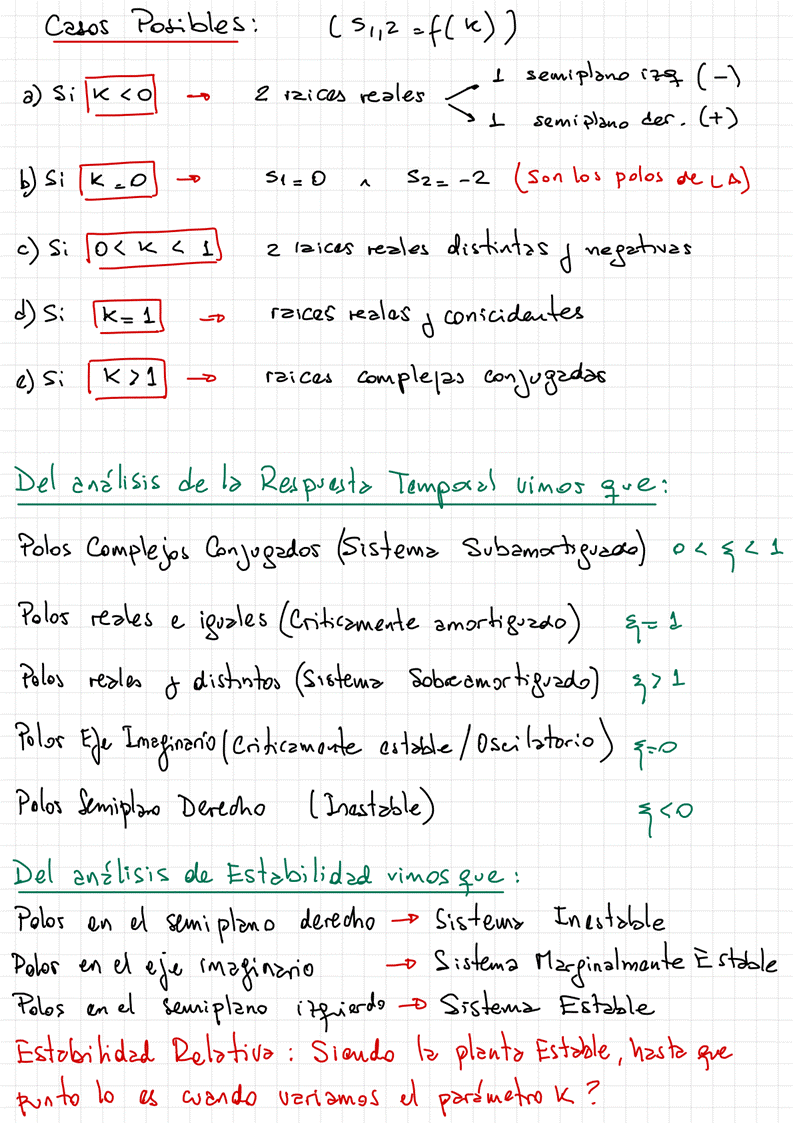 Casos Posibles: (S1,2 = f(K))
a) Si K < 0 → 2 raices reales 1 semiplano izq (-)
1 semiplano der. (+)
b) Si K = 0 → S1 = 0 ∧ S2 = -2 (Son los polos de LA)
c) Si 0 < K < 1 2 raices reales distintas y negativas
d) Si K = 1 → raices reales y conicidentes
e) Si K > 1 → raices complejas conjugadas
Del análisis de la Respuesta Temporal vimos que:
Polos Complejos Conjugados (Sistema Subamortiguado) 0 < ξ < 1
Polos reales e iguales (Criticamente amortiguado) ξ = 1
Polos reales y distintos (Sistema Sobreamortiguado) ξ > 1
Polos Eje Imaginario (Criticamente estable / Oscilatorio) ξ = 0
Polos Semiplano Derecho (Inestable) ξ < 0
Del análisis de Estabilidad vimos que:
Polos en el semiplano derecho → Sistema Inestable
Polos en el eje imaginario → Sistema Marginalmente Estable
Polos en el semiplano izquierdo → Sistema Estable
Estabilidad Relativa: Siendo la planta Estable, hasta que
punto lo es cuando variamos el parámetro K?